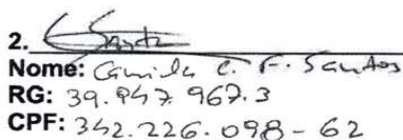 2.
Nome: Camila C. F. Santos
RG: 39.947.967.3
CPF: 342.226.098-62